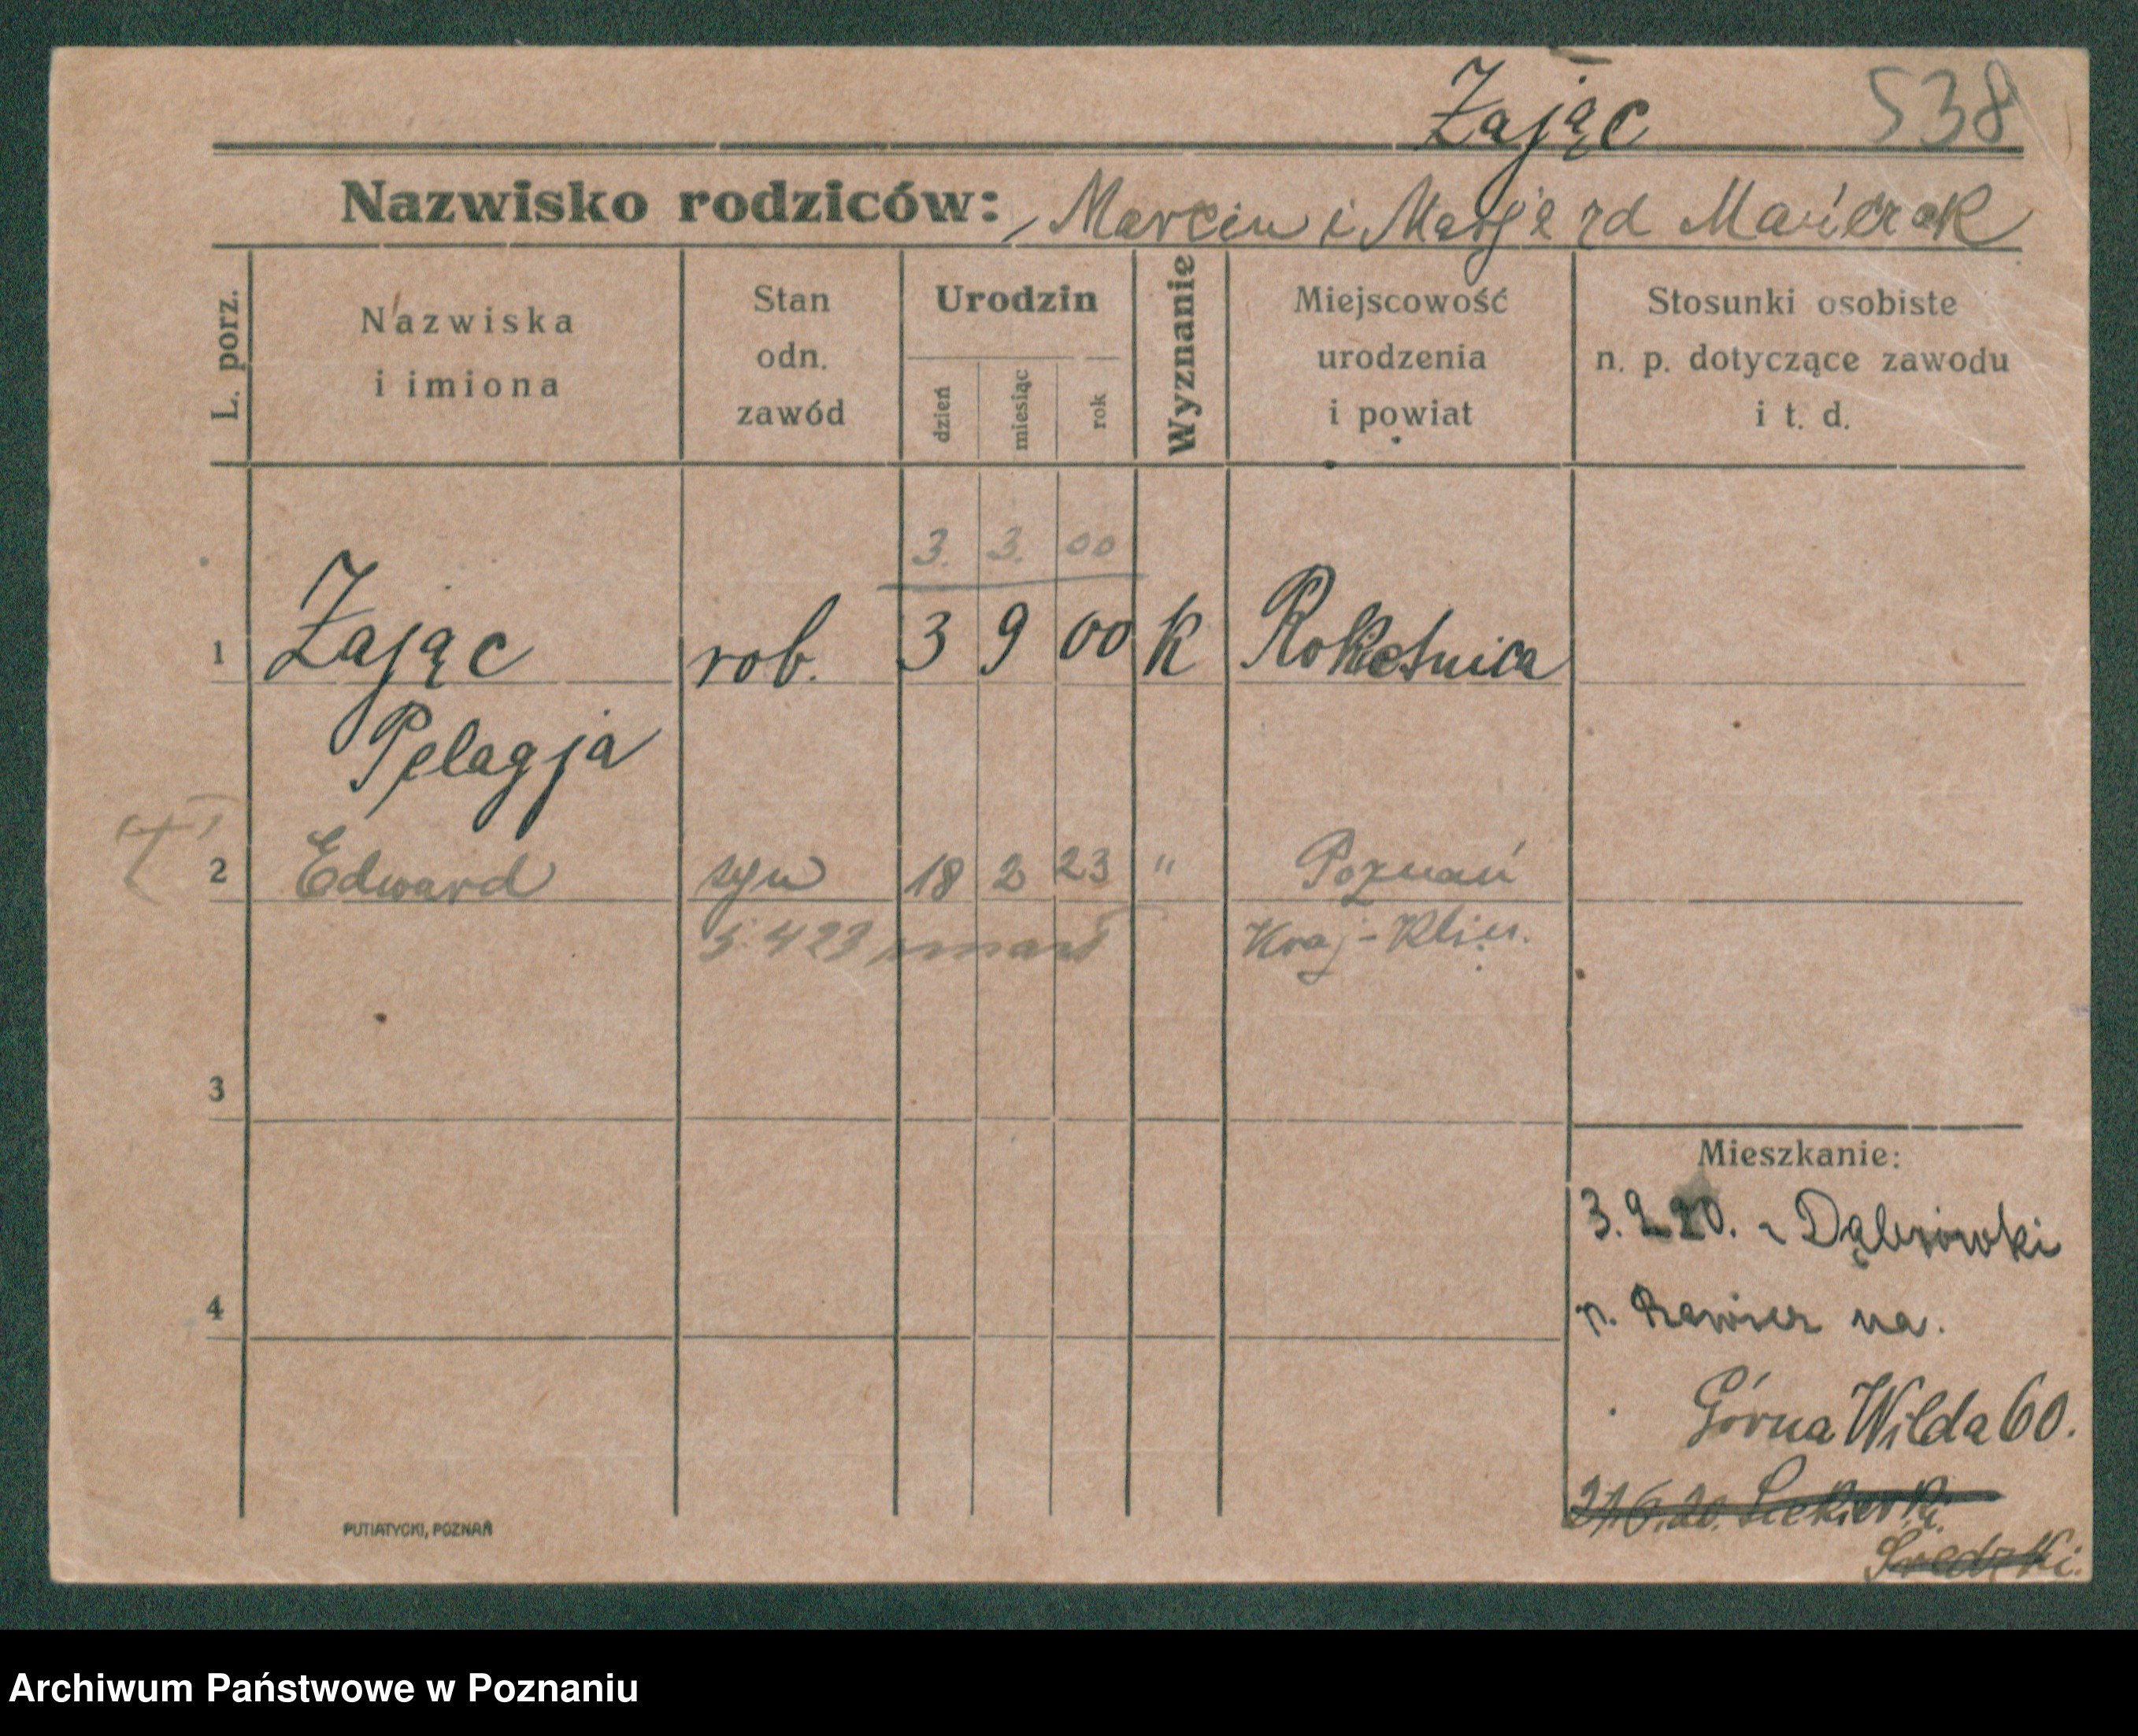 Zając 538
Nazwisko rodziców: Marcin i Marja zd
L. porz.
Nazwiska
i imiona
Stan
odn.
zawód
Urodzin
dzień
miesiąc
rok
Wyznanie
Miejscowość
urodzenia
i powiat
Stosunki osobiste
n. p. dotyczące zawodu
i t. d.
3. 3. 00
1 Zając rob. 3 9 00 K Rokietnica
Pelagja
2 Edward syn 18 2 23 " Poznań
5. 4 23 zmarł Kraj-Klin.
3
4
Mieszkanie:
3. 9 20. z Dąbrówki
p. na.
Górna Wilda 60.
Siekierki
Średzki.
PUTIATYCKI, POZNAŃ
Archiwum Państwowe w Poznaniu